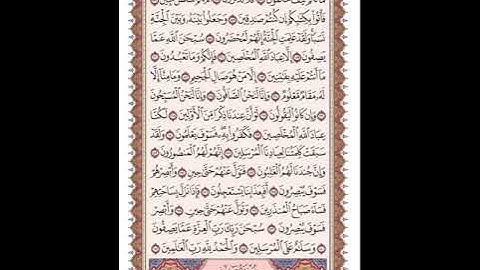 فَأْتُوا۟ بِكِتَـٰبِكُمْ إِن كُنتُمْ صَـٰدِقِينَ ۝ وَجَعَلُوا۟ بَيْنَهُۥ وَبَيْنَ ٱلْجِنَّةِ
نَسَبًا وَلَقَدْ عَلِمَتِ ٱلْجِنَّةُ إِنَّهُمْ لَمُحْضَرُونَ ۝ سُبْحَـٰنَ ٱللَّهِ عَمَّا
يَصِفُونَ ۝ إِلَّا عِبَادَ ٱللَّهِ ٱلْمُخْلَصِينَ ۝ فَإِنَّكُمْ وَمَا تَعْبُدُونَ ۝
مَآ أَنتُمْ عَلَيْهِ بِفَـٰتِنِينَ ۝ إِلَّا مَنْ هُوَ صَالِ ٱلْجَحِيمِ ۝ وَمَا مِنَّآ إِلَّا
لَهُۥ مَقَامٌ مَّعْلُومٌ ۝ وَإِنَّا لَنَحْنُ ٱلصَّآفُّونَ ۝ وَإِنَّا لَنَحْنُ ٱلْمُسَبِّحُونَ
۝ وَإِن كَانُوا۟ لَيَقُولُونَ ۝ لَوْ أَنَّ عِندَنَا ذِكْرًا مِّنَ ٱلْأَوَّلِينَ ۝ لَكُنَّا
عِبَادَ ٱللَّهِ ٱلْمُخْلَصِينَ ۝ فَكَفَرُوا۟ بِهِۦ فَسَوْفَ يَعْلَمُونَ ۝ وَلَقَدْ
سَبَقَتْ كَلِمَتُنَا لِعِبَادِنَا ٱلْمُرْسَلِينَ ۝ إِنَّهُمْ لَهُمُ ٱلْمَنصُورُونَ ۝
وَإِنَّ جُندَنَا لَهُمُ ٱلْغَـٰلِبُونَ ۝ فَتَوَلَّ عَنْهُمْ حَتَّىٰ حِينٍ ۝ وَأَبْصِرْهُمْ
فَسَوْفَ يُبْصِرُونَ ۝ أَفَبِعَذَابِنَا يَسْتَعْجِلُونَ ۝ فَإِذَا نَزَلَ بِسَاحَتِهِمْ
فَسَآءَ صَبَاحُ ٱلْمُنذَرِينَ ۝ وَتَوَلَّ عَنْهُمْ حَتَّىٰ حِينٍ ۝ وَأَبْصِرْ
فَسَوْفَ يُبْصِرُونَ ۝ سُبْحَـٰنَ رَبِّكَ رَبِّ ٱلْعِزَّةِ عَمَّا يَصِفُونَ
۝ وَسَلَـٰمٌ عَلَى ٱلْمُرْسَلِينَ ۝ وَٱلْحَمْدُ لِلَّهِ رَبِّ ٱلْعَـٰلَمِينَ ۝